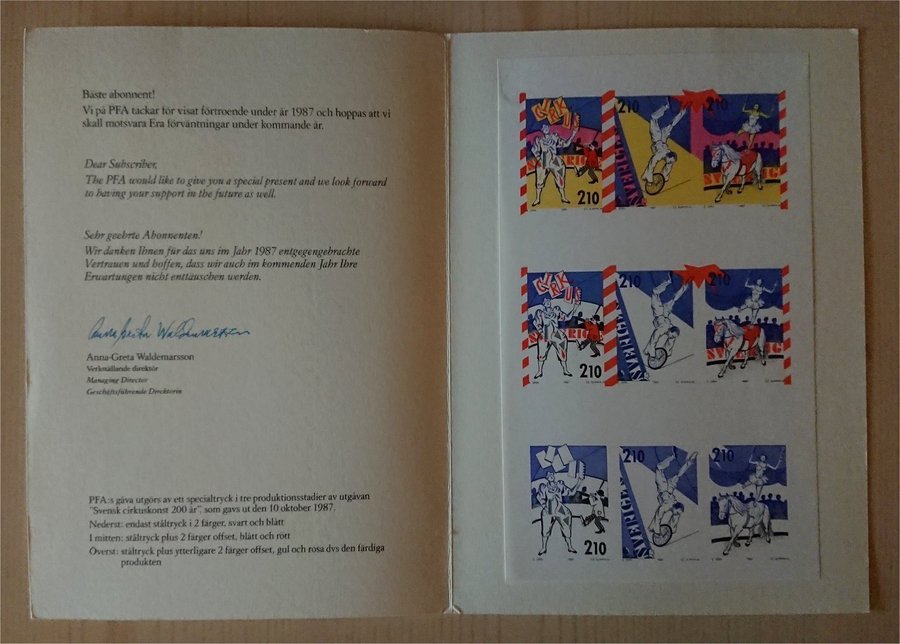 Bäste abonnent!
Vi på PFA tackar för visat förtroende under år 1987 och hoppas att vi
skall motsvara Era förväntningar under kommande år.
Dear Subscriber,
The PFA would like to give you a special present and we look forward
to having your support in the future as well.
Sehr geehrte Abonnenten!
Wir danken Ihnen für das uns im Jahr 1987 entgegengebrachte
Vertrauen und hoffen, dass wir auch im kommenden Jahr Ihre
Erwartungen nicht enttäuschen werden.
Anna-Greta Waldemarsson
Anna-Greta Waldemarsson
Verkställande direktör
Managing Director
Geschäftsführende Direktorin
PFA:s gåva utgörs av ett specialtryck i tre produktionsstadier av utgåvan
"Svensk cirkuskonst 200 år", som gavs ut den 10 oktober 1987.
Nederst: endast ståltryck i 2 färger, svart och blått
I mitten: ståltryck plus 2 färger offset, blått och rött
Överst: ståltryck plus ytterligare 2 färger offset, gul och rosa dvs den färdiga
produkten
CIRKUS
SVERIGE
210
210
SVERIGE
210
SVERIGE
CIRKUS
SVERIGE
210
210
SVERIGE
210
SVERIGE
210
210
SVERIGE
210